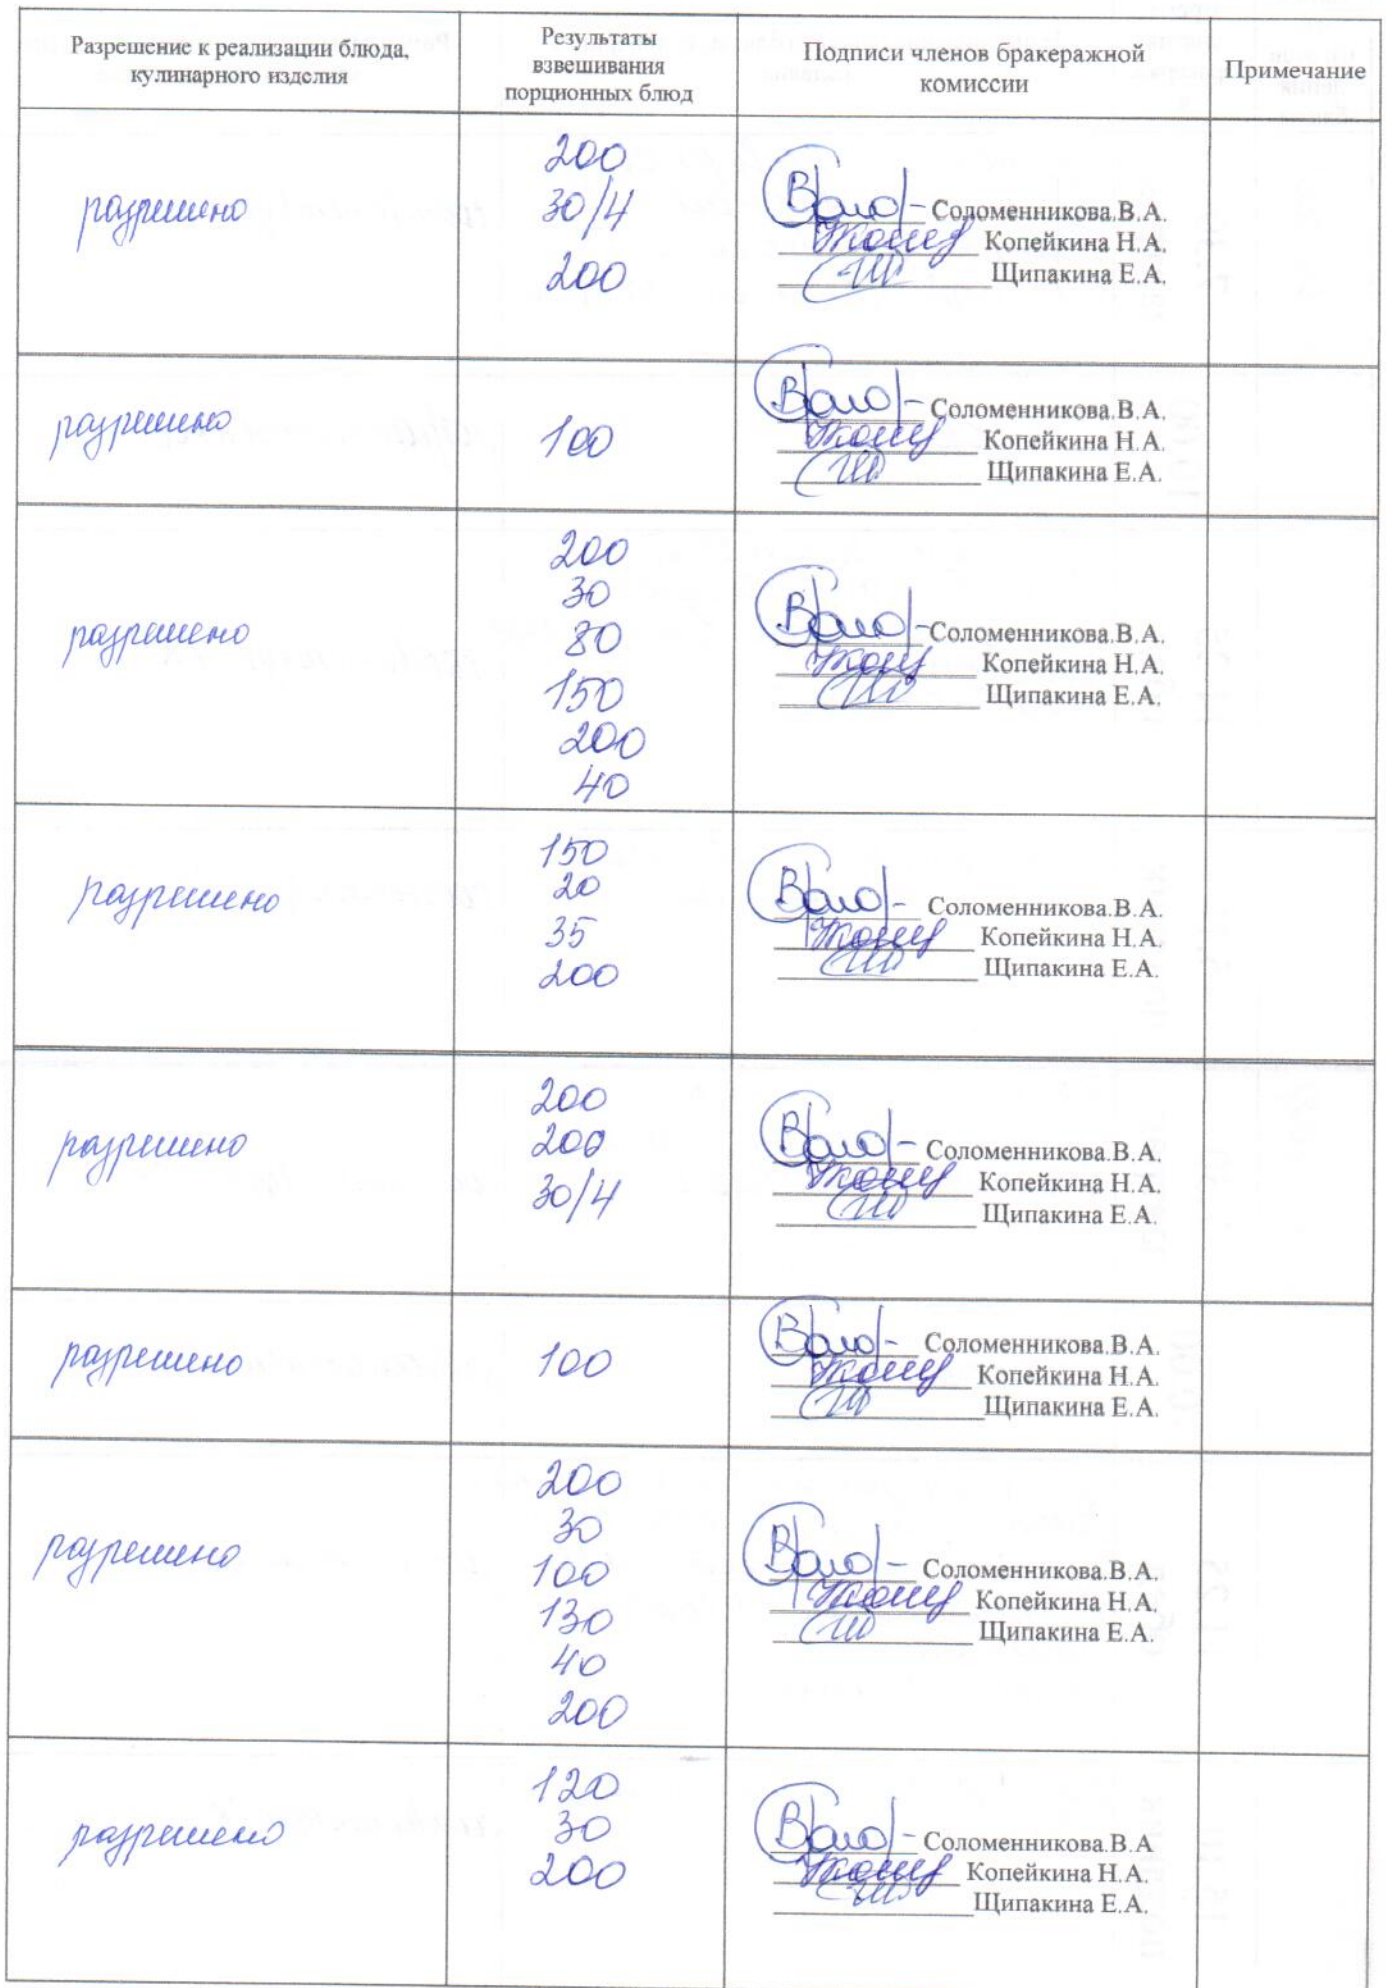 Разрешение к реализации блюда,
кулинарного изделия
Результаты
взвешивания
порционных блюд
Подписи членов бракеражной
комиссии
Примечание
разрешено
200
30/4
200
Соломенникова.В.А.
Копейкина Н.А.
Щипакина Е.А.
разрешено
100
Соломенникова.В.А.
Копейкина Н.А.
Щипакина Е.А.
разрешено
200
30
80
150
200
40
Соломенникова.В.А.
Копейкина Н.А.
Щипакина Е.А.
разрешено
150
20
35
200
Соломенникова.В.А.
Копейкина Н.А.
Щипакина Е.А.
разрешено
200
200
30/4
Соломенникова.В.А.
Копейкина Н.А.
Щипакина Е.А.
разрешено
100
Соломенникова.В.А.
Копейкина Н.А.
Щипакина Е.А.
разрешено
200
30
100
130
40
200
Соломенникова.В.А.
Копейкина Н.А.
Щипакина Е.А.
разрешено
120
30
200
Соломенникова.В.А
Копейкина Н.А.
Щипакина Е.А.